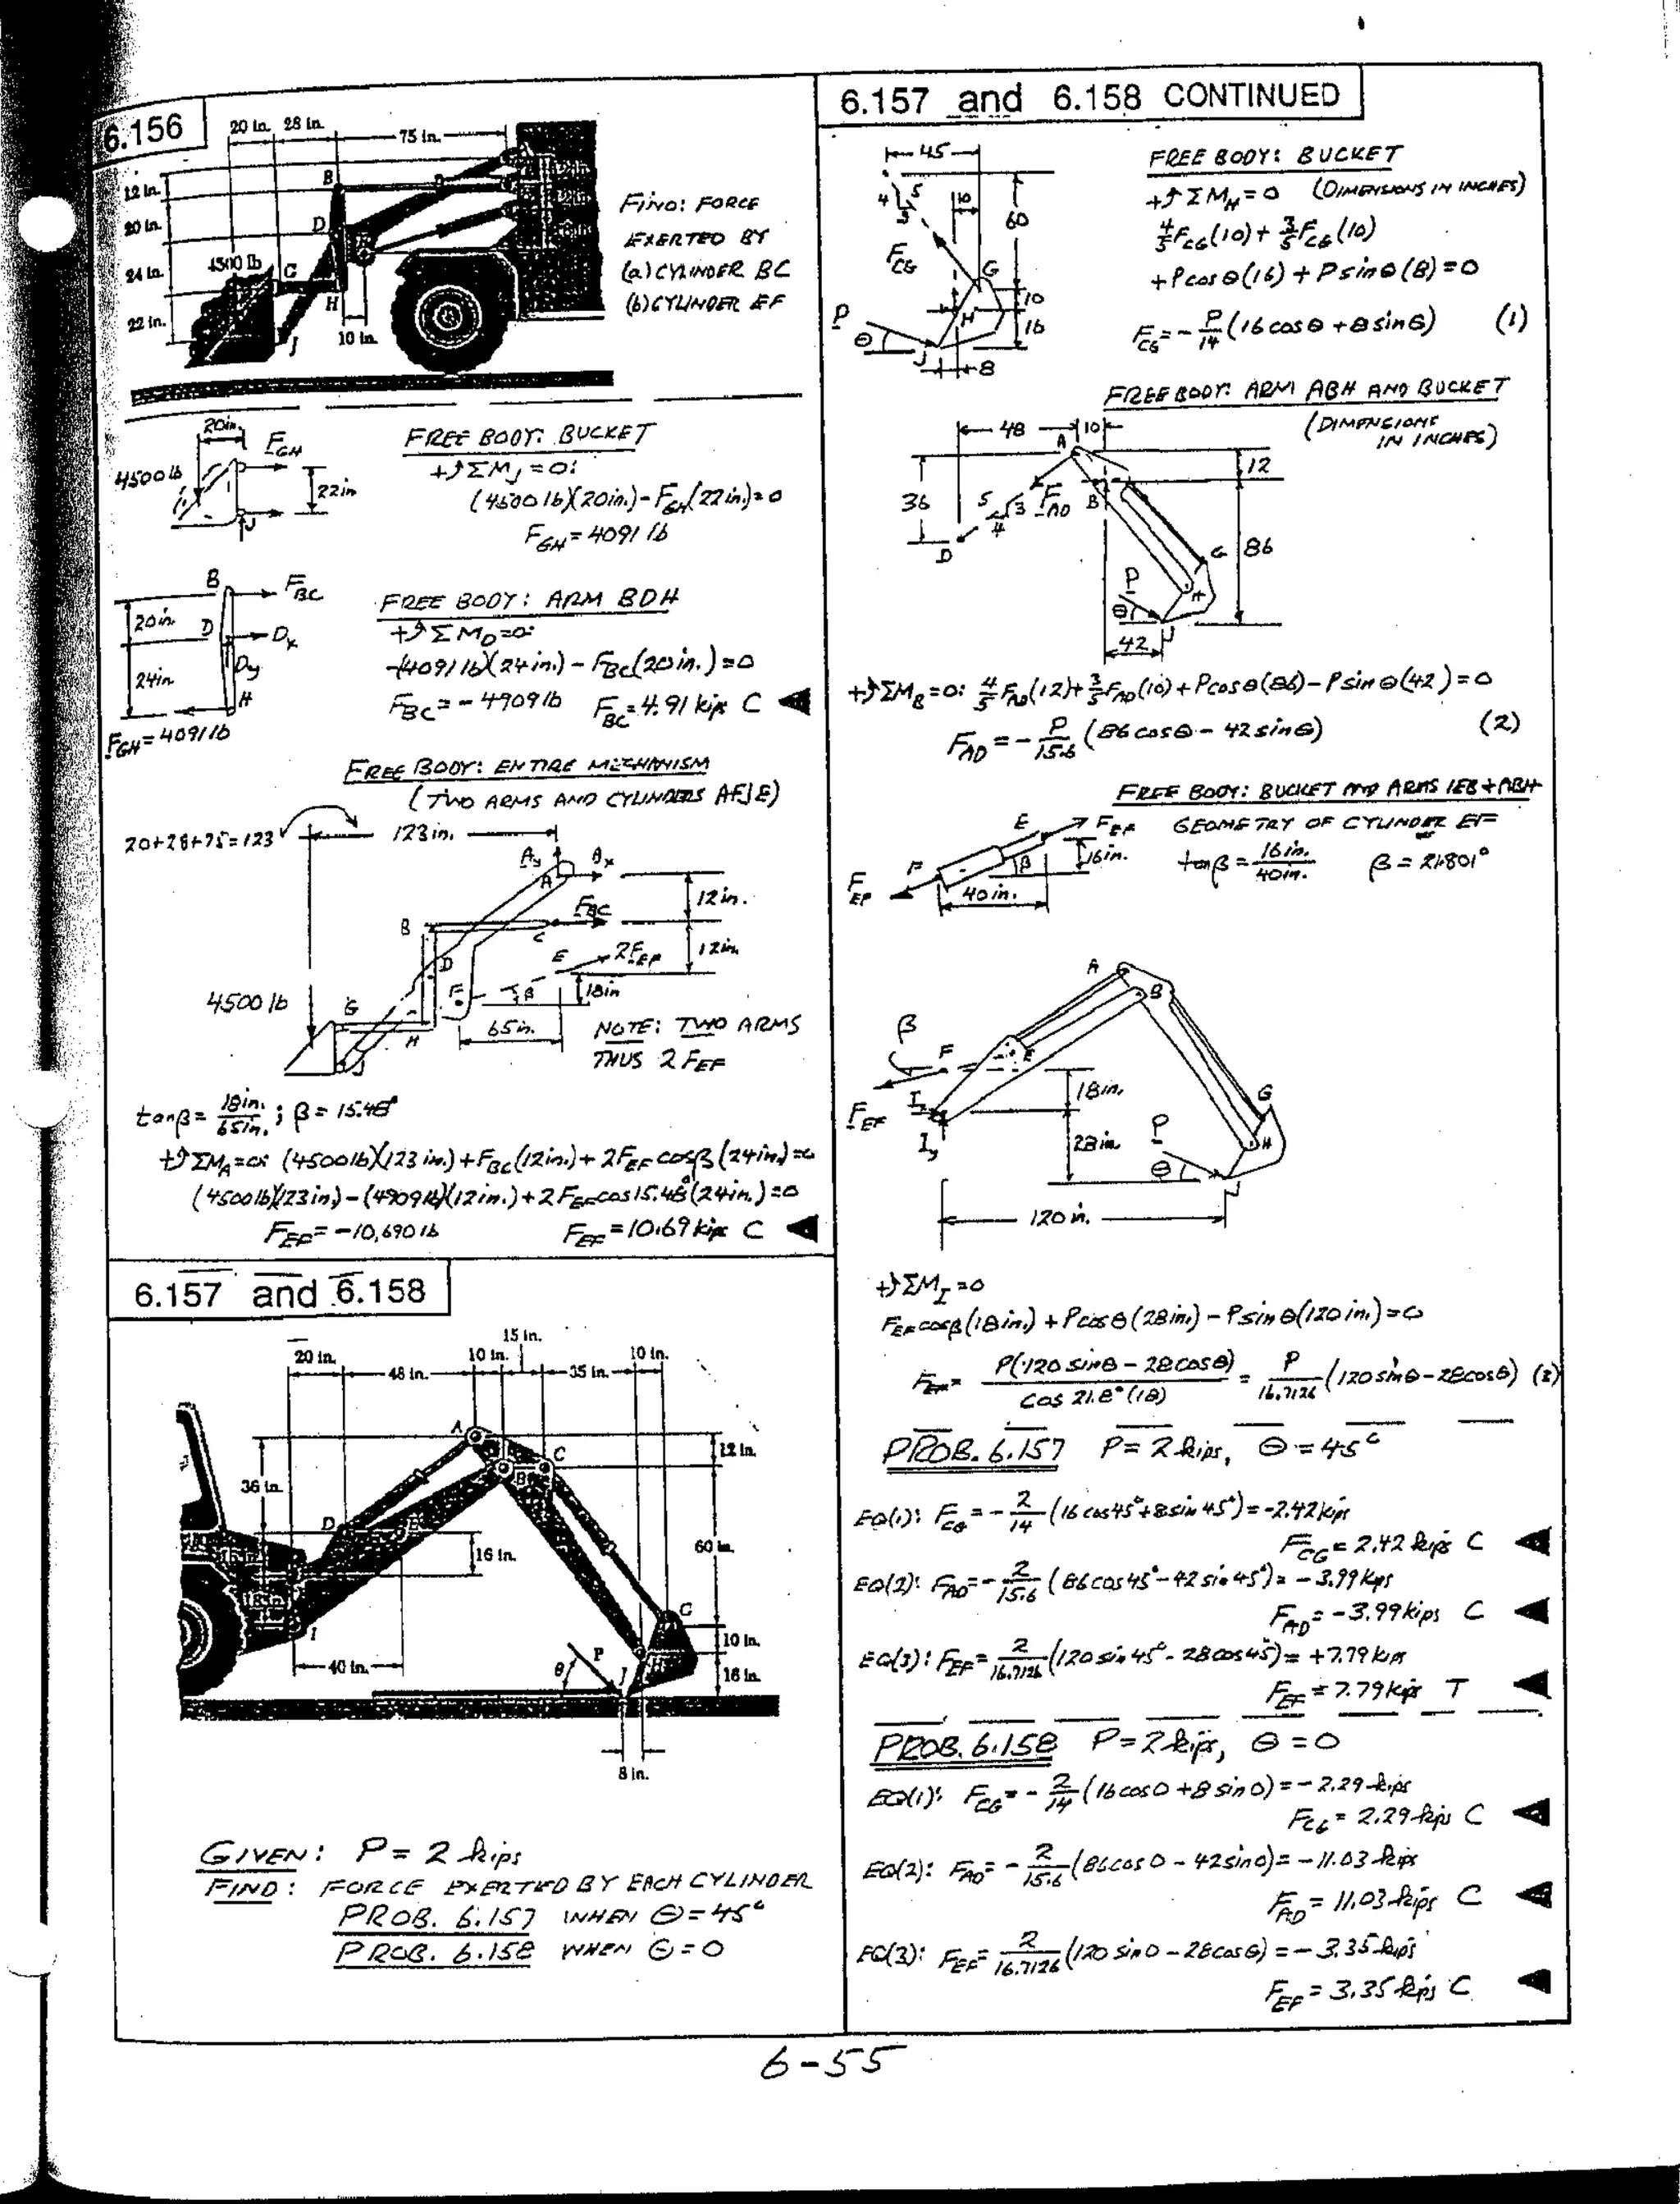 6.156
20 in. 28 in.
75 in.
12 in.
20 in.
24 in.
22 in.
4500 lb
B
D
G
H
J
10 in.
FIND: FORCE
EXERTED BY
(a) CYLINDER BC
(b) CYLINDER EF
20in.
F_GH
4500 lb
22in
J
FREE BODY: BUCKET
+↺ΣM_J = 0:
(4500 lb)(20in.) - F_GH(22in.) = 0
F_GH = 4091 lb
B F_BC
20in. D D_x
D_y
24in
H
F_GH = 4091 lb
FREE BODY: ARM BDH
+↺ΣM_D = 0:
-(4091 lb)(24in.) - F_BC(20in.) = 0
F_BC = -4909 lb F_BC = 4.91 kips C ◀
FREE BODY: ENTIRE MECHANISM
(TWO ARMS AND CYLINDERS AFJE)
20+28+75=123
123in.
A_y A_x
A
12in.
B F_BC
C
12in.
D E 2F_EF
F β 18in
65in.
4500 lb
G
H
J
NOTE: TWO ARMS
THUS 2F_EF
tanβ = 18in./65in. ; β = 15.48°
+↺ΣM_A=0: (4500 lb)(123 in.)+F_BC(12in.)+2F_EF cosβ(24in.)=0
(4500 lb)(123in.)-(4909 lb)(12in.)+2F_EF cos15.48°(24in.)=0
F_EF = -10,690 lb F_EF = 10.69 kips C ◀
6.157 and 6.158
15 in.
20 in. 10 in. 10 in.
48 in. 35 in.
A
C
B
12 in.
36 in.
D E
16 in.
60 in.
18 in.
I
G
40 in.
θ P J H
10 in.
16 in.
8 in.
GIVEN: P = 2 kips
FIND: FORCE EXERTED BY EACH CYLINDER
PROB. 6.157 WHEN θ = 45°
PROB. 6.158 WHEN θ = 0
6.157 and 6.158 CONTINUED
45
4 5
3
10
60
F_CG
G
10
H
16
P
θ
J
8
FREE BODY: BUCKET
+↺ΣM_H = 0 (DIMENSIONS IN INCHES)
4/5 F_CG(10) + 3/5 F_CG(10)
+ P cosθ(16) + P sinθ(8) = 0
F_CG = - P/14 (16 cosθ + 8 sinθ) (1)
FREE BODY: ARM ABH AND BUCKET
(DIMENSIONS
IN INCHES)
48 10
A
12
36 5 3 F_AD B
4
D
G 86
P
H
θ
J
42
+↺ΣM_B=0: 4/5 F_AD(12)+3/5 F_AD(10)+P cosθ(86)-P sinθ(42)=0
F_AD = - P/15.6 (86 cosθ - 42 sinθ) (2)
FREE BODY: BUCKET AND ARMS IEB + ABH
E F_EF
GEOMETRY OF CYLINDER EF
F β 16in.
tanβ = 16in./40in. β = 21.801°
F_EF 40in.
A
B
β
F E
18in.
G
F_EF
I_x
I_y
P
28in.
H
θ
J
120in.
+↺ΣM_I = 0
F_EF cosβ(18in.) + P cosθ(28in.) - P sinθ(120in.) = 0
F_EF = P(120 sinθ - 28cosθ)/cos 21.8°(18) = P/16.7126 (120 sinθ - 28cosθ) (3)
PROB. 6.157 P = 2 kips, θ = 45°
EQ(1): F_CG = - 2/14 (16 cos45°+8sin45°) = -2.42 kips
F_CG = 2.42 kips C ◀
EQ(2): F_AD = - 2/15.6 (86cos45°-42sin45°) = -3.99 kips
F_AD = -3.99 kips C ◀
EQ(3): F_EF = 2/16.7126 (120 sin45° - 28cos45°) = +7.79 kips
F_EF = 7.79 kips T ◀
PROB. 6.158 P = 2 kips, θ = 0
EQ(1): F_CG = - 2/14 (16cos0 + 8 sin0) = -2.29 kips
F_CG = 2.29 kips C ◀
EQ(2): F_AD = - 2/15.6 (86cos0 - 42sin0) = -11.03 kips
F_AD = 11.03 kips C ◀
EQ(3): F_EF = 2/16.7126 (120 sin0 - 28cos0) = -3.35 kips
F_EF = 3.35 kips C ◀
6-55